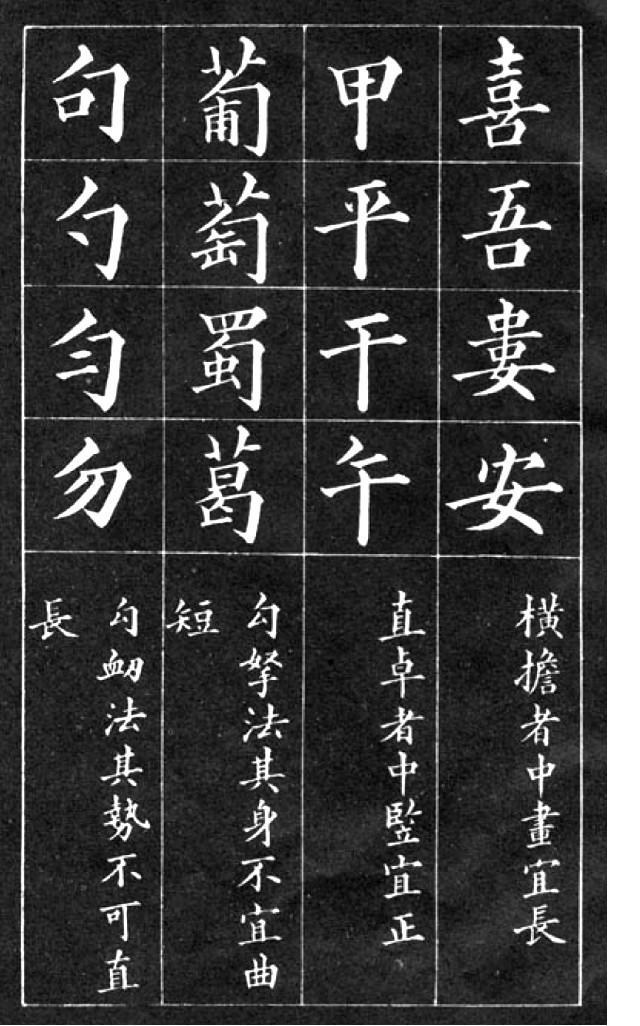 喜
吾
婁
安
橫擔者中畫宜長
甲
平
干
午
直卓者中竪宜正
葡
萄
蜀
葛
勾拏法其身不宜曲
短
句
勺
勻
勿
勾衂法其勢不可直
長